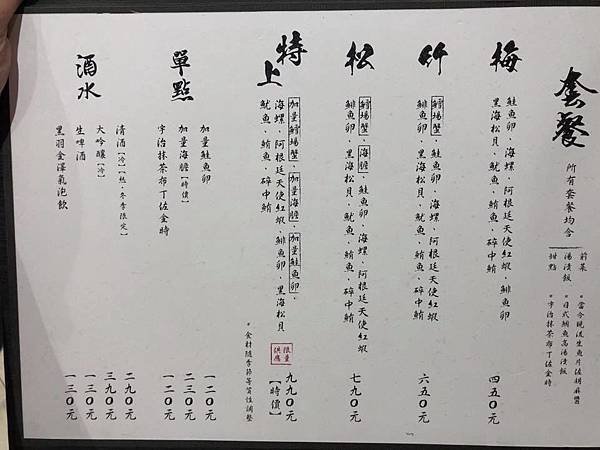 套餐
所有套餐均含
前菜 *當令現流生魚片佐胡麻醬
湯漬飯 *日式鯛魚高湯漬飯
甜點 *宇治抹茶布丁佐金時
梅
鮭魚卵、海螺、阿根廷天使紅蝦、鯡魚卵、
黑海松貝、魷魚、鮪魚、碎中鮪
四五〇元
竹
鱈場蟹、鮭魚卵、海螺、阿根廷天使紅蝦、
鯡魚卵、黑海松貝、魷魚、鮪魚、碎中鮪
六五〇元
松
鱈場蟹、海膽、鮭魚卵、海螺、阿根廷天使紅蝦、
鯡魚卵、黑海松貝、魷魚、鮪魚、碎中鮪
七九〇元
特上
加量鱈場蟹、加量海膽、加量鮭魚卵、
海螺、阿根廷天使紅蝦、鯡魚卵、黑海松貝、
魷魚、鮪魚、碎中鮪
限量供應
九九〇元
【時價】
*食材隨季節等質性調整
單點
加量鮭魚卵 一二〇元
加量海膽【時價】 二三〇元
宇治抹茶布丁佐金時 一二〇元
酒水
清酒【冷】【熱,冬季限定】 二九〇元
大吟釀【冷】 三九〇元
生啤酒 一三〇元
黑羽金澤氣泡飲 一三〇元